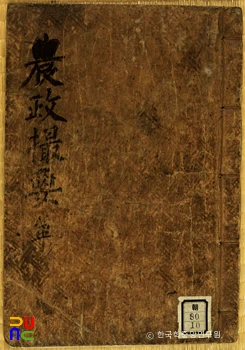 農政撮要 單
朝
80
10
© 한국학중앙연구원